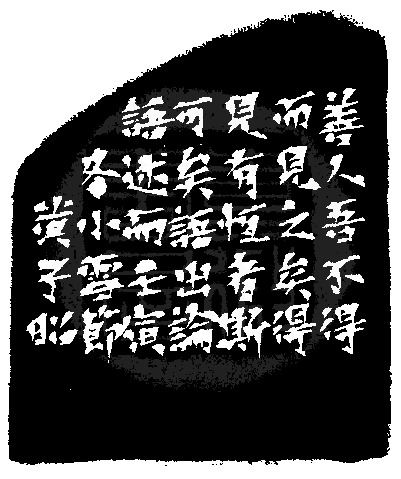 善人吾不得
而見之矣得
見有恒者斯
可矣語出論
語述而壬寅
冬小雪節
黄子昭